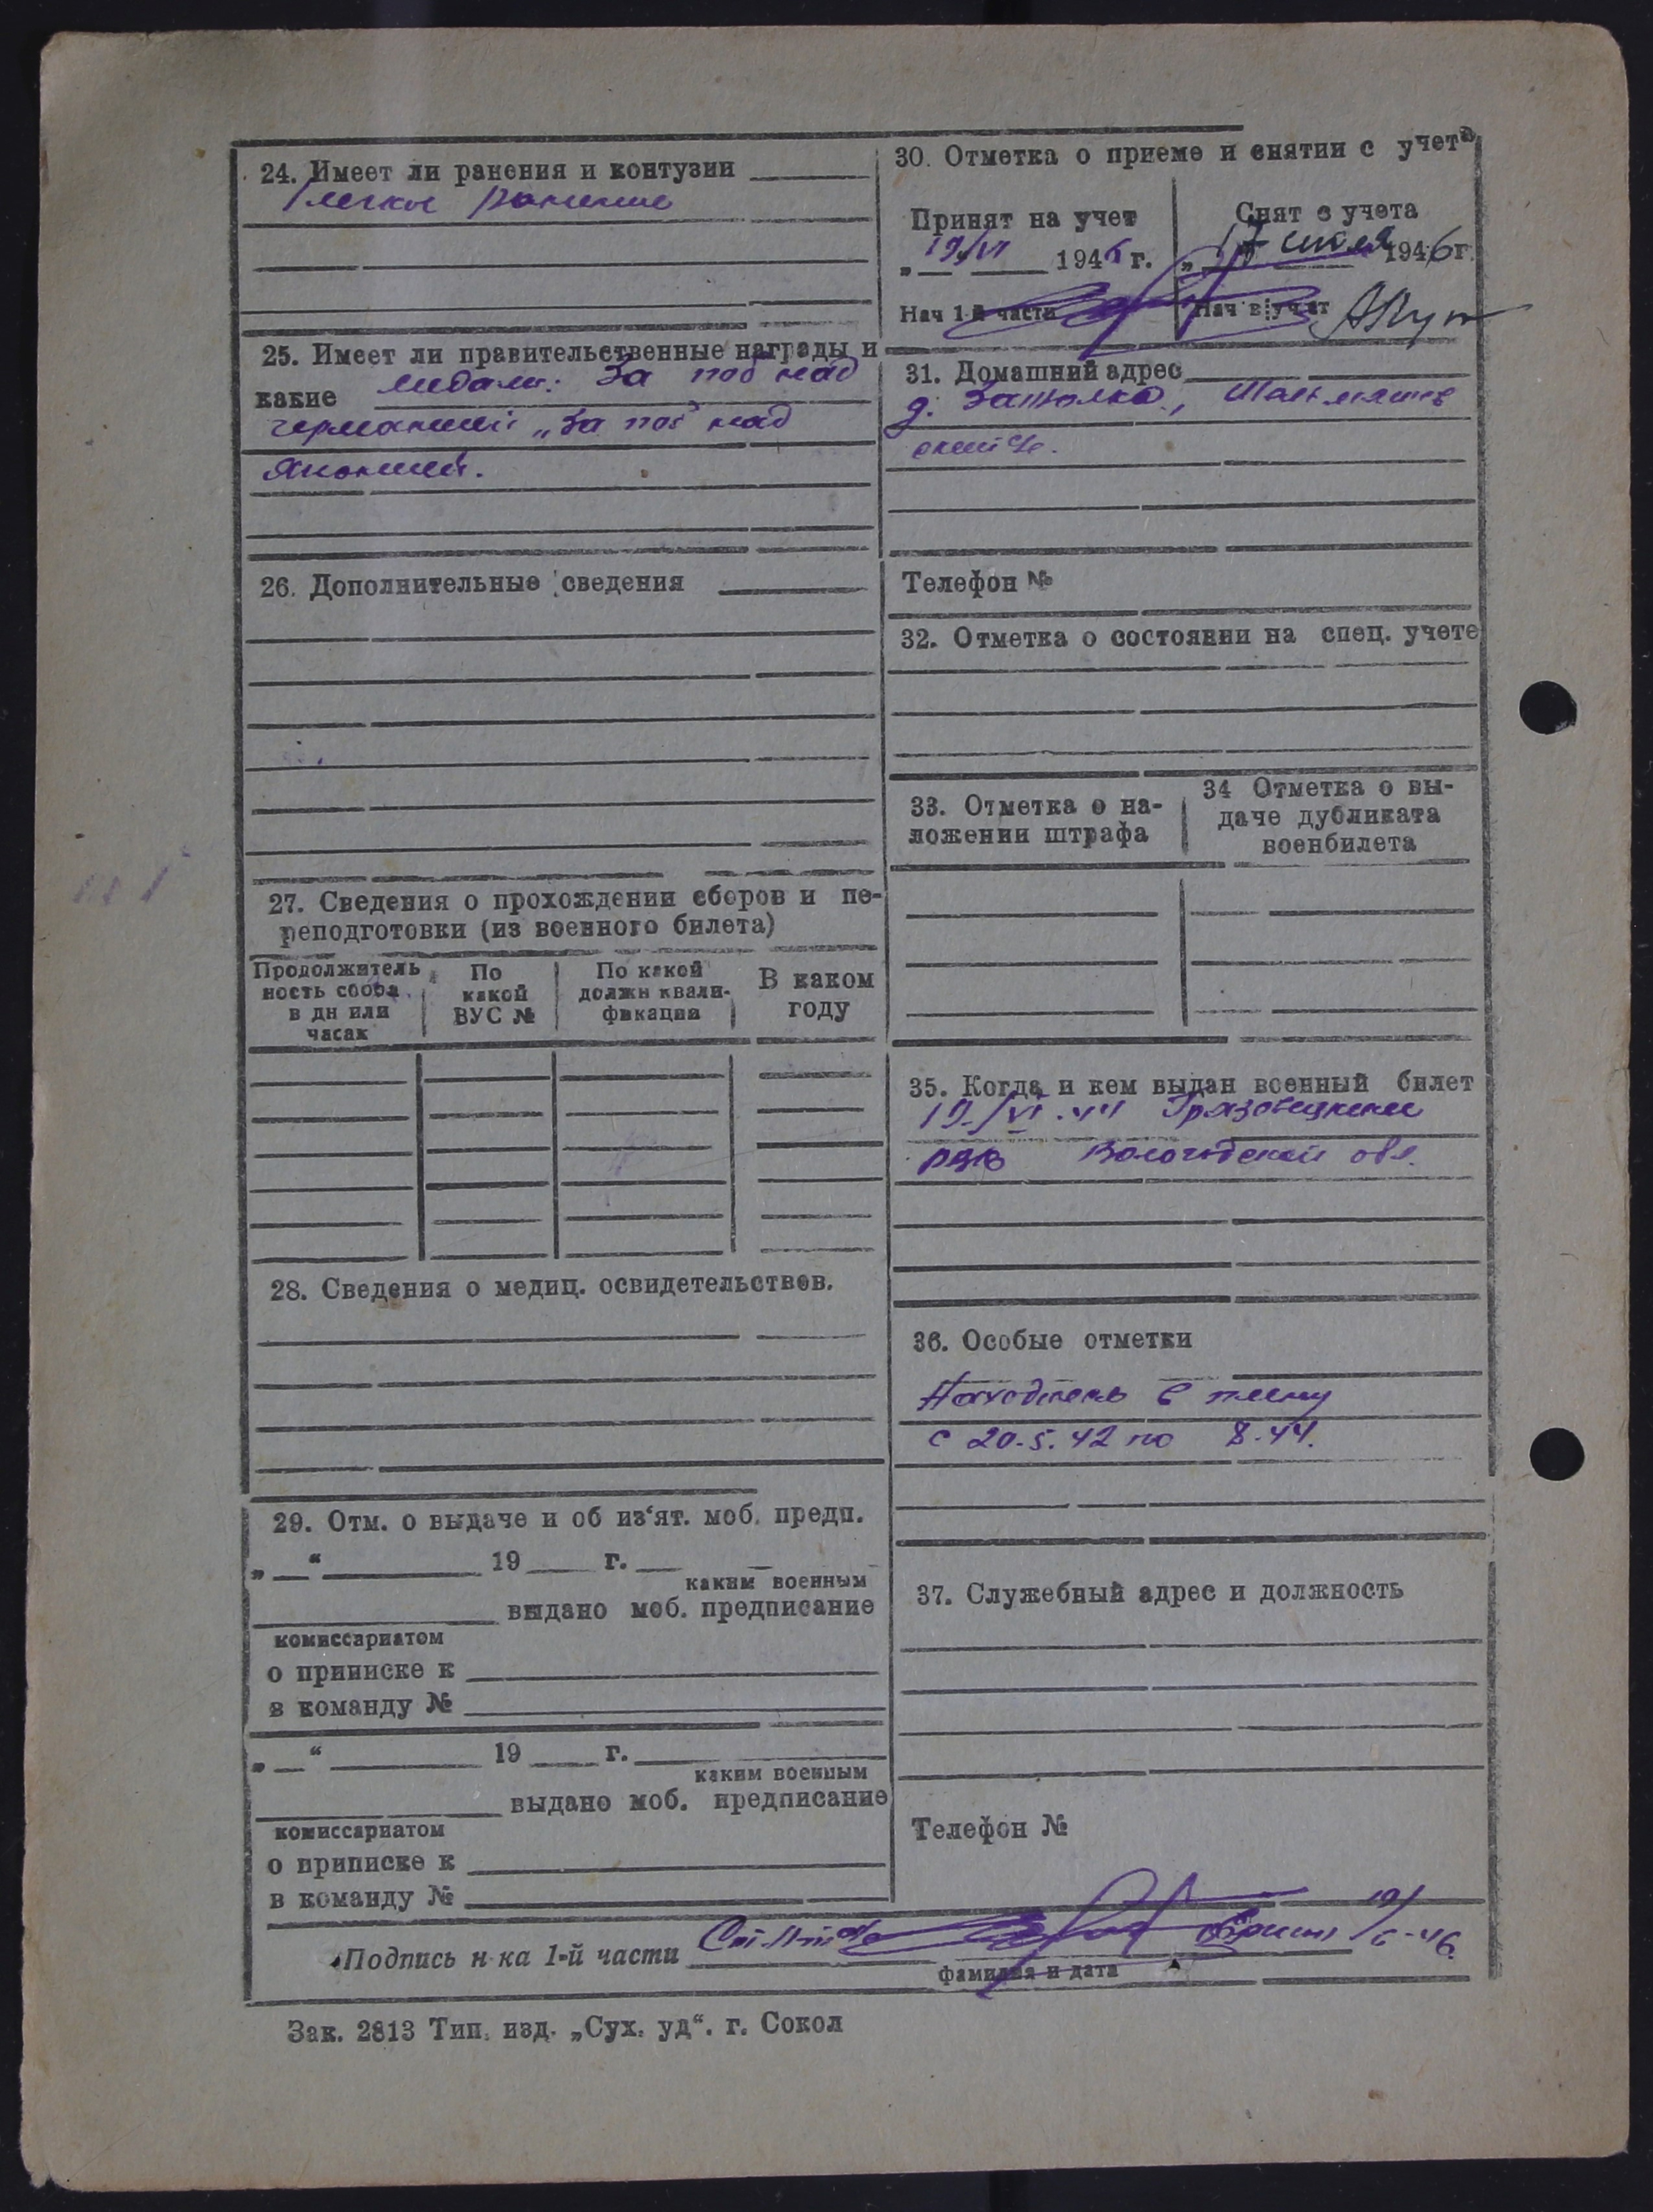 24. Имеет ли ранения и контузии
легкое ранение
25. Имеет ли правительственные награды и
какие медали: За поб над
германией „За поб над
Японией.
26. Дополнительные сведения
27. Сведения о прохождении сборов и пе-
реподготовки (из военного билета)
Продолжитель
ность сбора
в дн или
часах
По
какой
ВУС №
По какой
должн квали-
фикации
В каком
году
28. Сведения о медиц. освидетельствов.
29. Отм. о выдаче и об из‘ят. моб. предп.
„ “ 19 г.
каким военным
выдано моб. предписание
комиссариатом
о приписке к
в команду №
„ “ 19 г.
каким военным
выдано моб. предписание
комиссариатом
о приписке к
в команду №
30. Отметка о приеме и снятии с учета
Принят на учет
„19/VI 1946 г.
Нач 1-й части
Снят с учета
„17 июля 1946г.
Нач в: учет
31. Домашний адрес
д.
Телефон №
32. Отметка о состоянии на спец. учете
33. Отметка о на-
ложении штрафа
34 Отметка о вы-
даче дубликата
военбилета
35. Когда и кем выдан военный билет
19/VI.44 Грязовецким
РВК Вологодской обл.
36. Особые отметки
Находились в плену
с 20.5.42 по 8.44.
37. Служебный адрес и должность
Телефон №
Подпись н-ка 1-й части 19/6-46.
фамилия и дата
Зак. 2813 Тип. изд. „Сух. уд“. г. Сокол